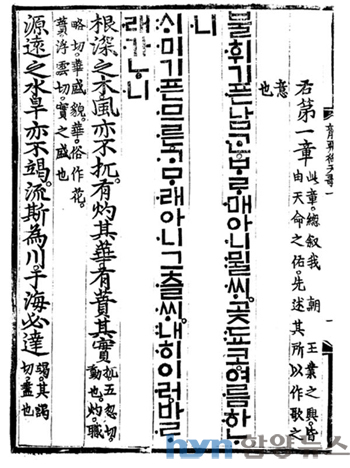 右第一章 此章。總叙我 朝 王業之興。皆
由天命之佑。先述其所以作歌之
意
也
불휘기픈남ᄀᆞᆫᄇᆞᄅᆞ매아니뮐ᄊᆡ。곶됴코。여름하ᄂᆞ
니
ᄉᆡ미기픈므른。ᄀᆞᄆᆞ래아니그츨ᄊᆡ。내히이러바ᄅᆞ
래가ᄂᆞ니
根深之木。風亦不扤。有灼其華。有蕡其實 扤五忽切。
動也。灼職
略切。華盛貌。華俗作花。
蕡浮雲切。實之盛也
源遠之水。旱亦不竭。流斯為川。于海必達 竭。其謁
切。盡也
hyn 함양뉴스